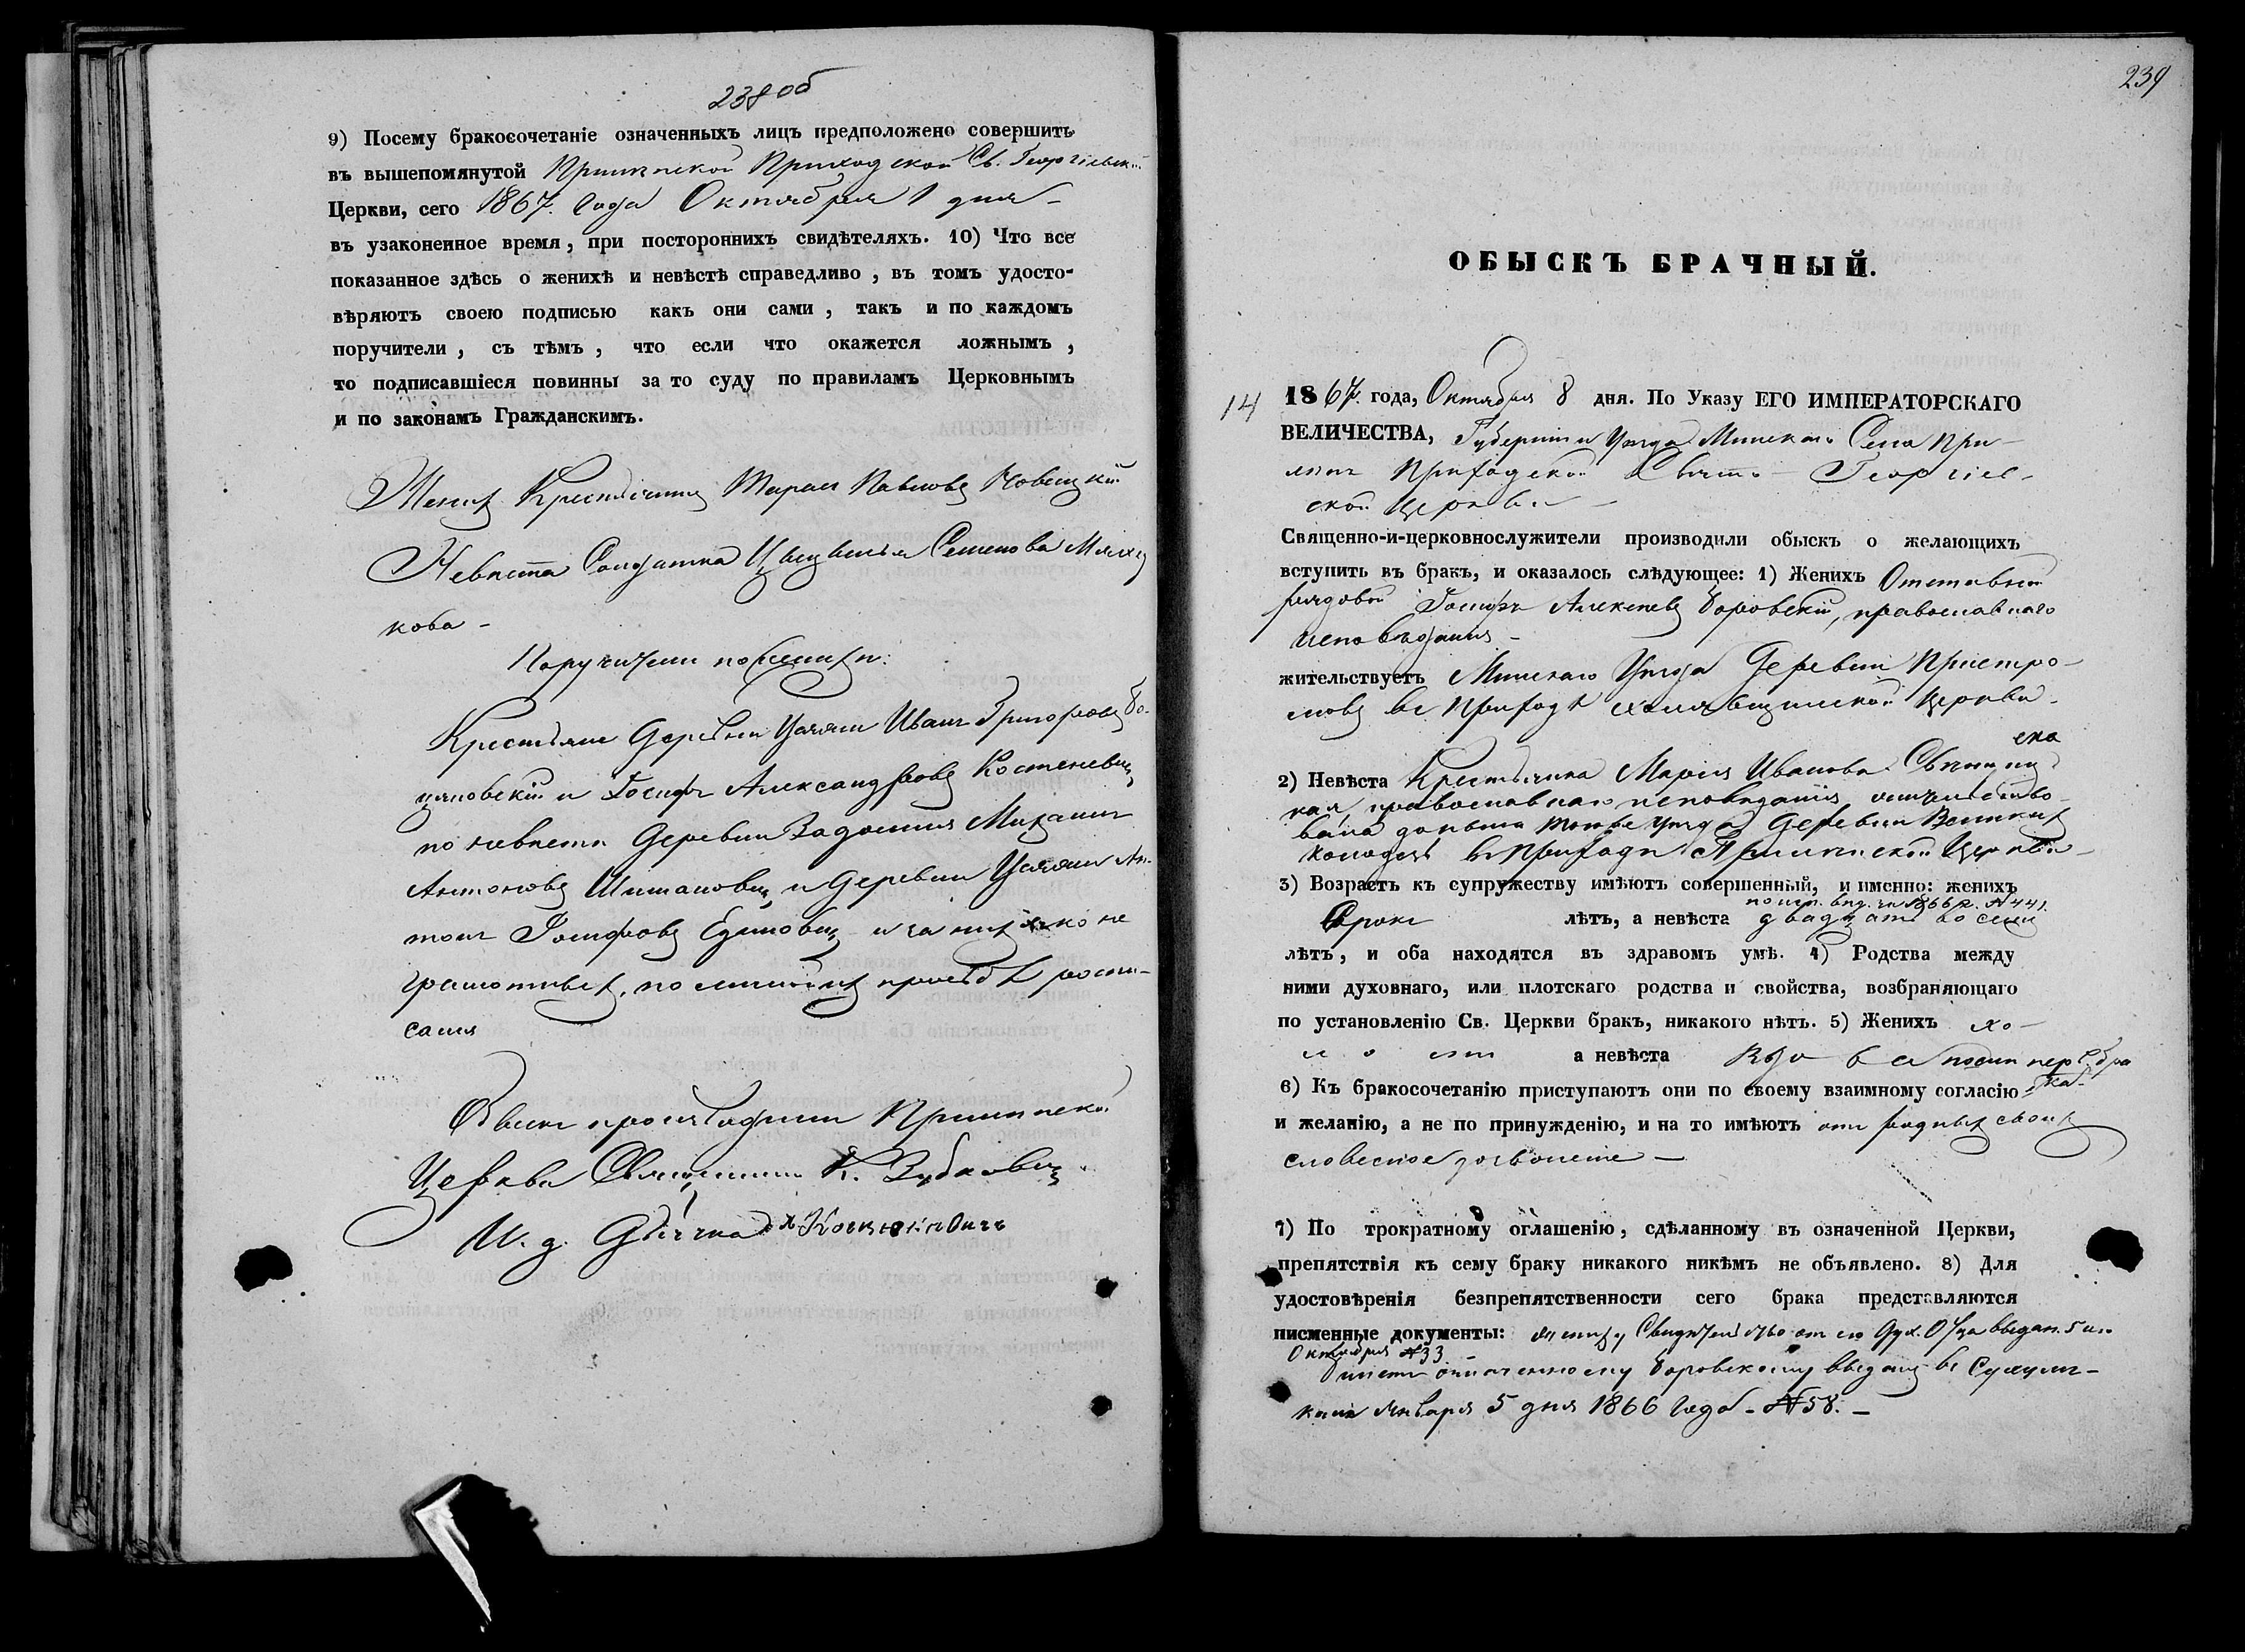 238 об
9) Посему бракосочетаніе означенныхъ лицъ предположено совершить
въ вышепомянутой Прилѣпской Приходской Св. Георгіевск.
Церкви, сего 1867. Года Октября 1 дня
въ узаконенное время, при постороннихъ свидѣтеляхъ. 10) Что все
показанное здѣсь о женихѣ и невѣстѣ справедливо, въ томъ удосто-
вѣряютъ своею подписью какъ они сами, такъ и по каждомъ
поручители, съ тѣмъ, что если что окажется ложнымъ,
то подписавшіеся повинны за то суду по правиламъ Церковнымъ
и по законамъ Гражданскимъ.
Женихъ Крестьянинъ Тарасъ Павловъ Новицкій
Невѣста Солдатка Семенова
кова
Поручители по женихѣ:
Крестьяне Деревни Усяжи Иванъ Григорьевъ Бо-
и Іосифъ Александровъ Костеневичъ,
по невѣстѣ Деревни Задомля Михаилъ
Антоновъ Шимановичъ, и Деревни Усяжи Ан-
тонъ Іосифовъ и за нихъ яко не
грамотныхъ, по личной ихъ просьбѣ роспи-
сался
Обыскъ производили Прилѣпской
Церкви Священникъ К. Зубковичъ
И. д. Дьячка
239
ОБЫСКЪ БРАЧНЫЙ.
14 1867. года, Октября 8 дня. По Указу ЕГО ИМПЕРАТОРСКАГО
ВЕЛИЧЕСТВА, Губерніи и Уѣзда Минскаго Села При-
лѣпъ Приходской Свято-Георгіев-
ской Церкви
Священно-и-церковнослужители производили обыскъ о желающихъ
вступить въ бракъ, и оказалось слѣдующее: 1) Женихъ Отставной
рядовой Іосифъ Алексѣевъ Боровскій, православнаго
исповѣданія
жительствуетъ Минскаго Уѣзда Деревни Пристро-
мовъ въ Приходѣ Церкви
2) Невѣста Крестьянка Марія Иванова
кая, православнаго исповѣданія, жительство-
вала донынѣ тогоже уѣзда Деревни Великихъ
Колодезь въ Приходѣ Прилѣпской Церкви
3) Возрастъ къ супружеству имѣютъ совершенный, и именно: женихъ
по исп. вѣд. за 1866 г. №441.
Сорокъ лѣтъ, а невѣста двадцать восемь
лѣтъ, и оба находятся въ здравомъ умѣ. 4) Родства между
ними духовнаго, или плотскаго родства и свойства, возбраняющаго
по установленію Св. Церкви бракъ, никакого нѣтъ. 5) Женихъ хо-
лостъ а невѣста вдова послѣ перв. бра
ка
6) Къ бракосочетанію приступаютъ они по своему взаимному согласію
и желанію, а не по принужденію, и на то имѣютъ отъ родныхъ своихъ
словесное дозволеніе
7) По трократному оглашенію, сдѣланному въ означенной Церкви,
препятствія къ сему браку никакого никѣмъ не объявлено. 8) Для
удостовѣренія безпрепятственности сего брака представляются
писменные документы: жениху Свидѣтельство отъ его Дух. Отца выдан. 5 го
Октября №33
билетъ означенному Боровскому выданъ въ
Января 5 дня 1866 Года №58.